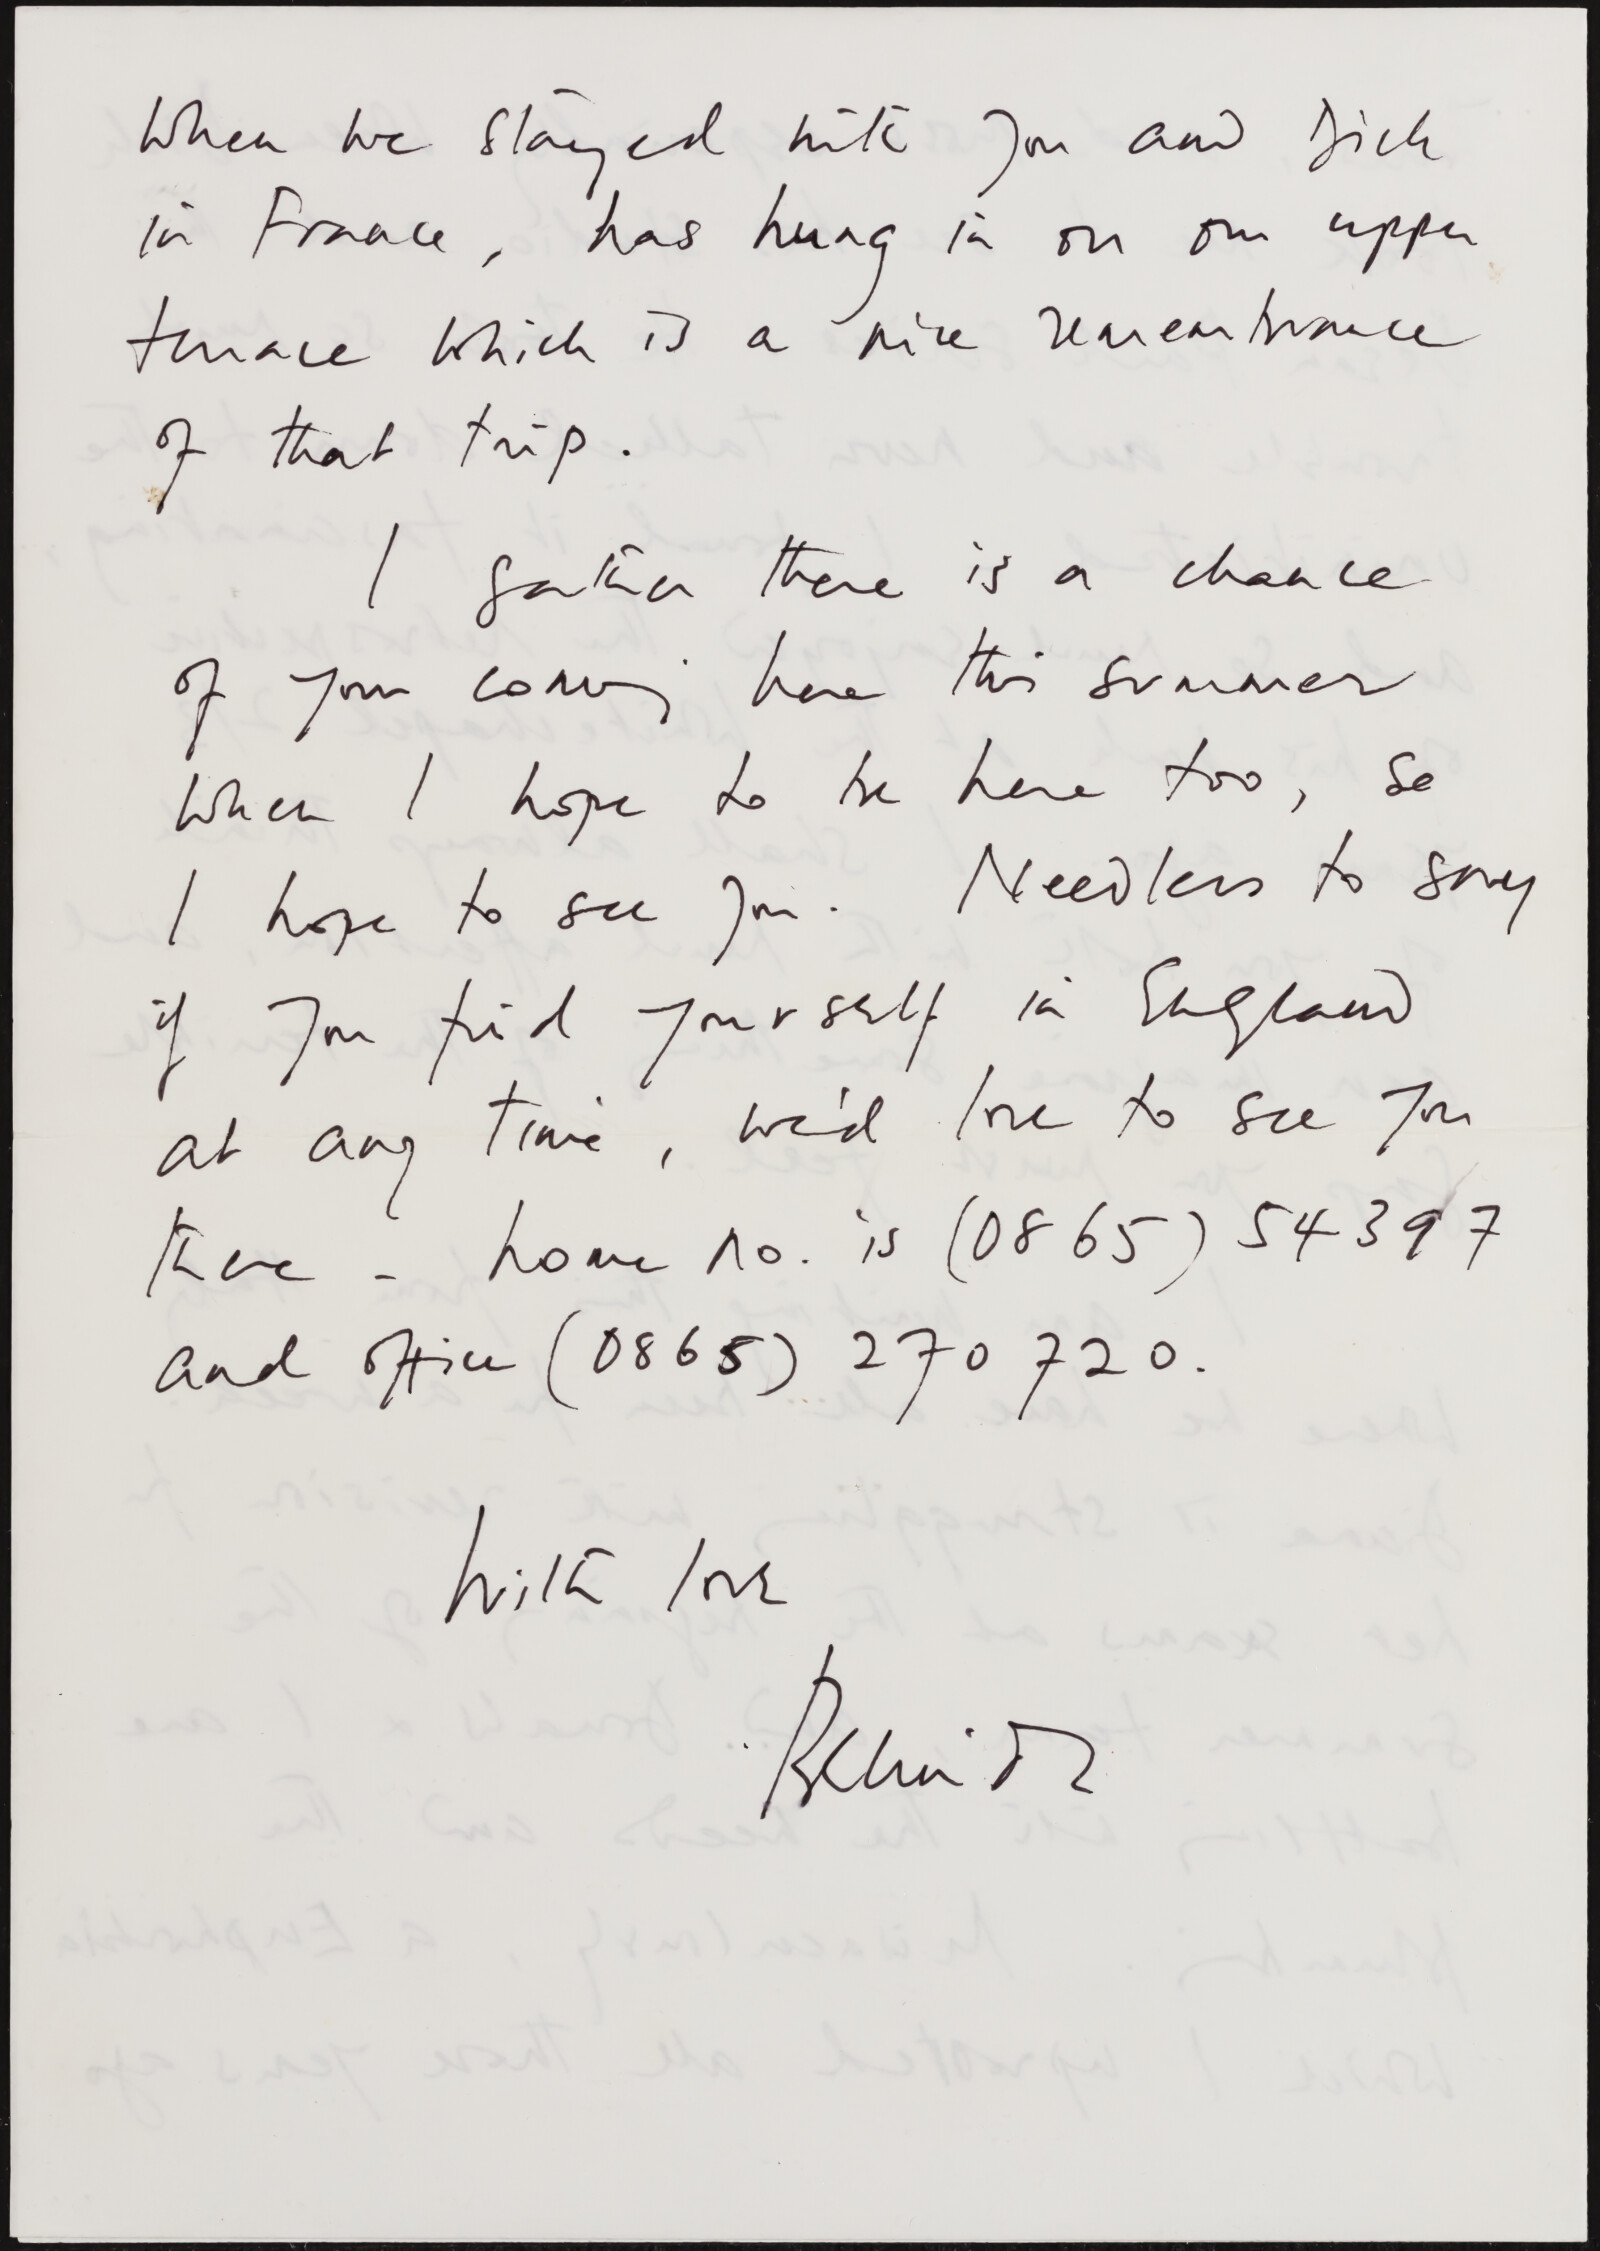 when we stayed with you and Dick
in France, has hung in on our upper
terrace which is a nice remembrance
of that trip.
I gather there is a chance
of your coming here this summer
when I hope to be here too, so
I hope to see you. Needless to say
if you find yourself in England
at any time, we'd love to see you
there - home no. is (0865) 54397
and office (0865) 270720.
With love
Belinda